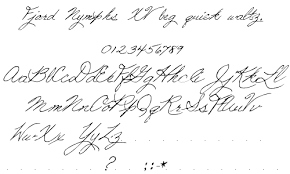 Fjord Nymphs XV beg quick waltz.
0123456789
AaBbCcDdEeFfGgHhIi JjKkLl
MmNnOoPpQqRrSsTtUuVv
WwXx YyZz . . . . . . . . . . . .
. . . . . . . . ? . . ; : - * . . . . . . . .